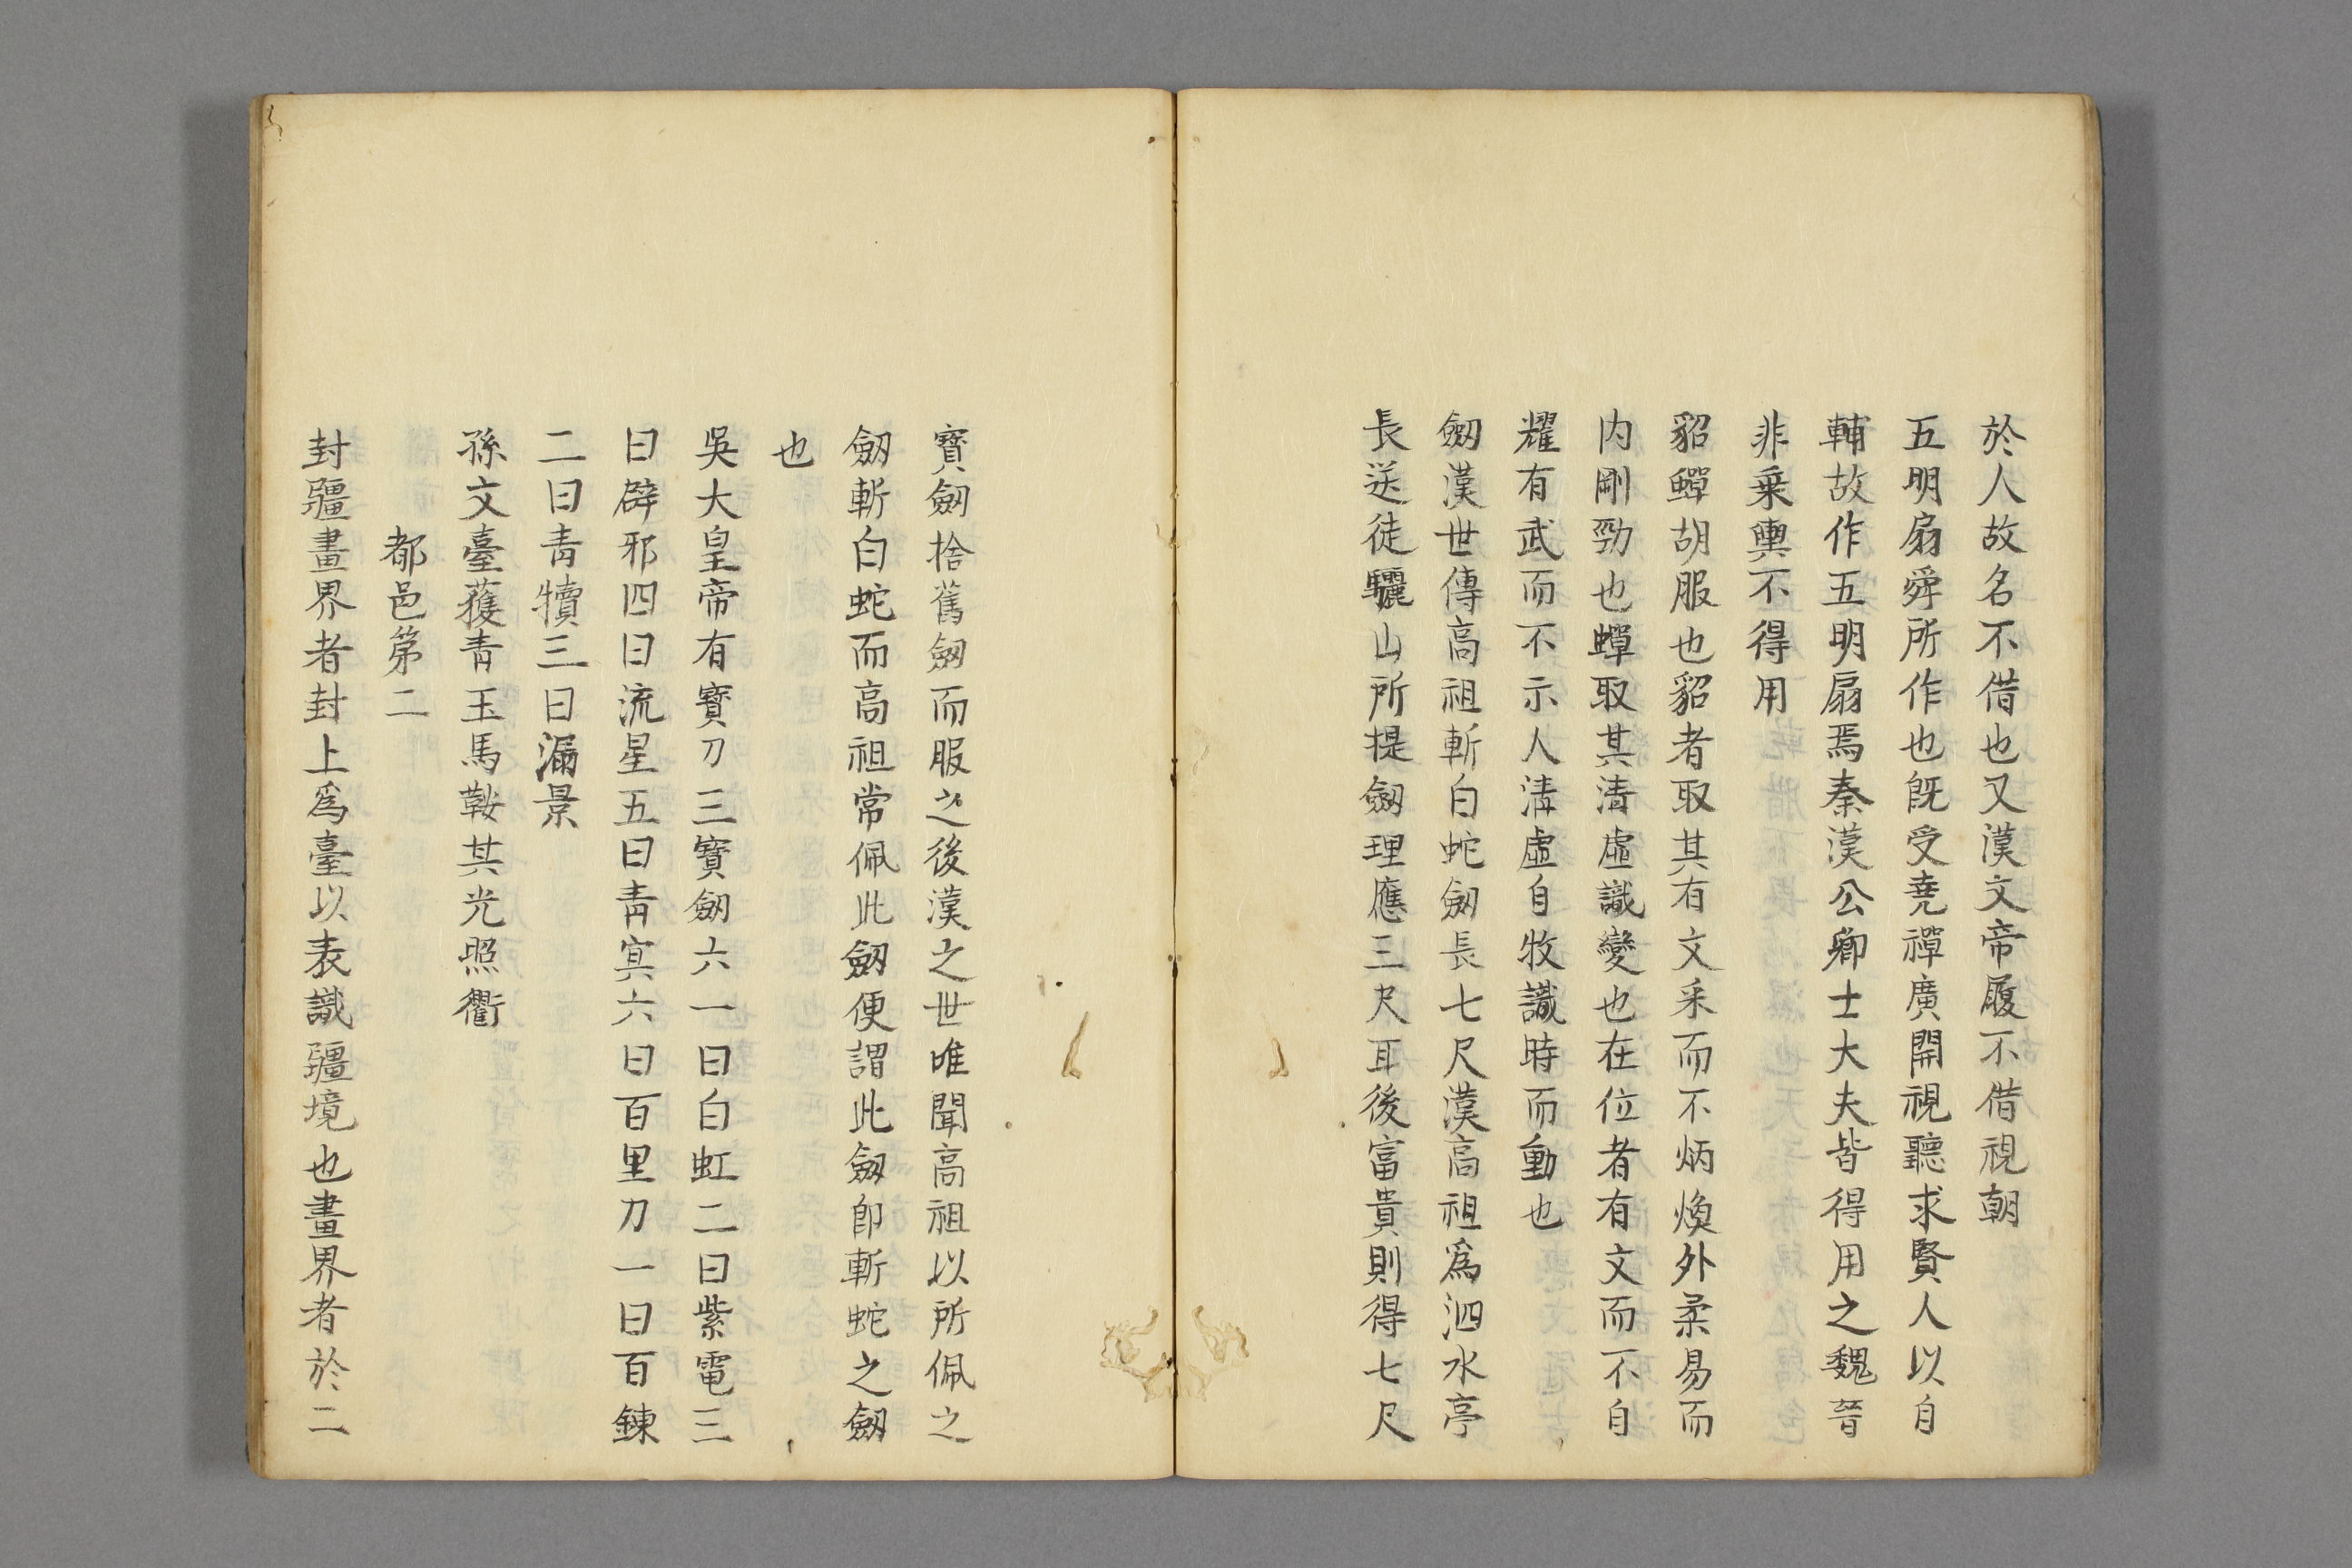 於人故名不借也又漢文帝履不借視朝
五明扇舜所作也既受堯禪廣開視聽求賢人以自
輔故作五明扇焉秦漢公卿士大夫皆得用之魏晉
非乗輿不得用
貂蟬胡服也貂者取其有文采而不炳煥外柔易而
内剛勁也蟬取其清虛識變也在位者有文而不自
耀有武而不示人清虛自牧識時而動也
劔漢世傳高祖斬白蛇劔長七尺漢高祖為泗水亭
長送徒驪山所提劔理應三尺耳後富貴則得七尺
寶劔捨舊劔而服之後漢之世唯聞高祖以所佩之
劔斬白蛇而高祖常佩此劔便謂此劔即斬蛇之劔
也
吳大皇帝有寶刀三寶劔六一曰白虹二曰紫電三
曰辟邪四曰流星五曰青冥六曰百里刀一曰百鍊
二曰青犢三曰漏景
孫文臺獲青玉馬鞍其光照衢
都邑第二
封疆畫界者封上為臺以表識疆境也畫界者於二